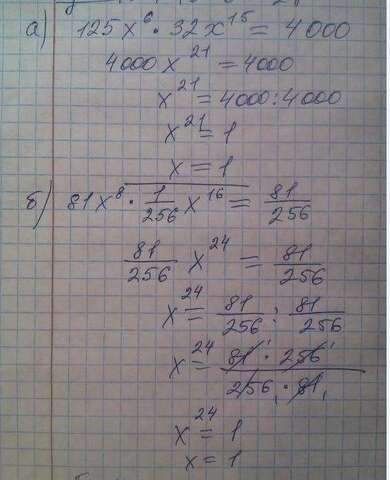 а) 125x⁶ · 32x¹⁵ = 4000
4000x²¹ = 4000
x²¹ = 4000 : 4000
x²¹ = 1
x = 1
б) 81x⁸ · 1/256 x¹⁶ = 81/256
81/256 x²⁴ = 81/256
x²⁴ = 81/256 : 81/256
x²⁴ = 81 · 256 / 256 · 81
x²⁴ = 1
x = 1